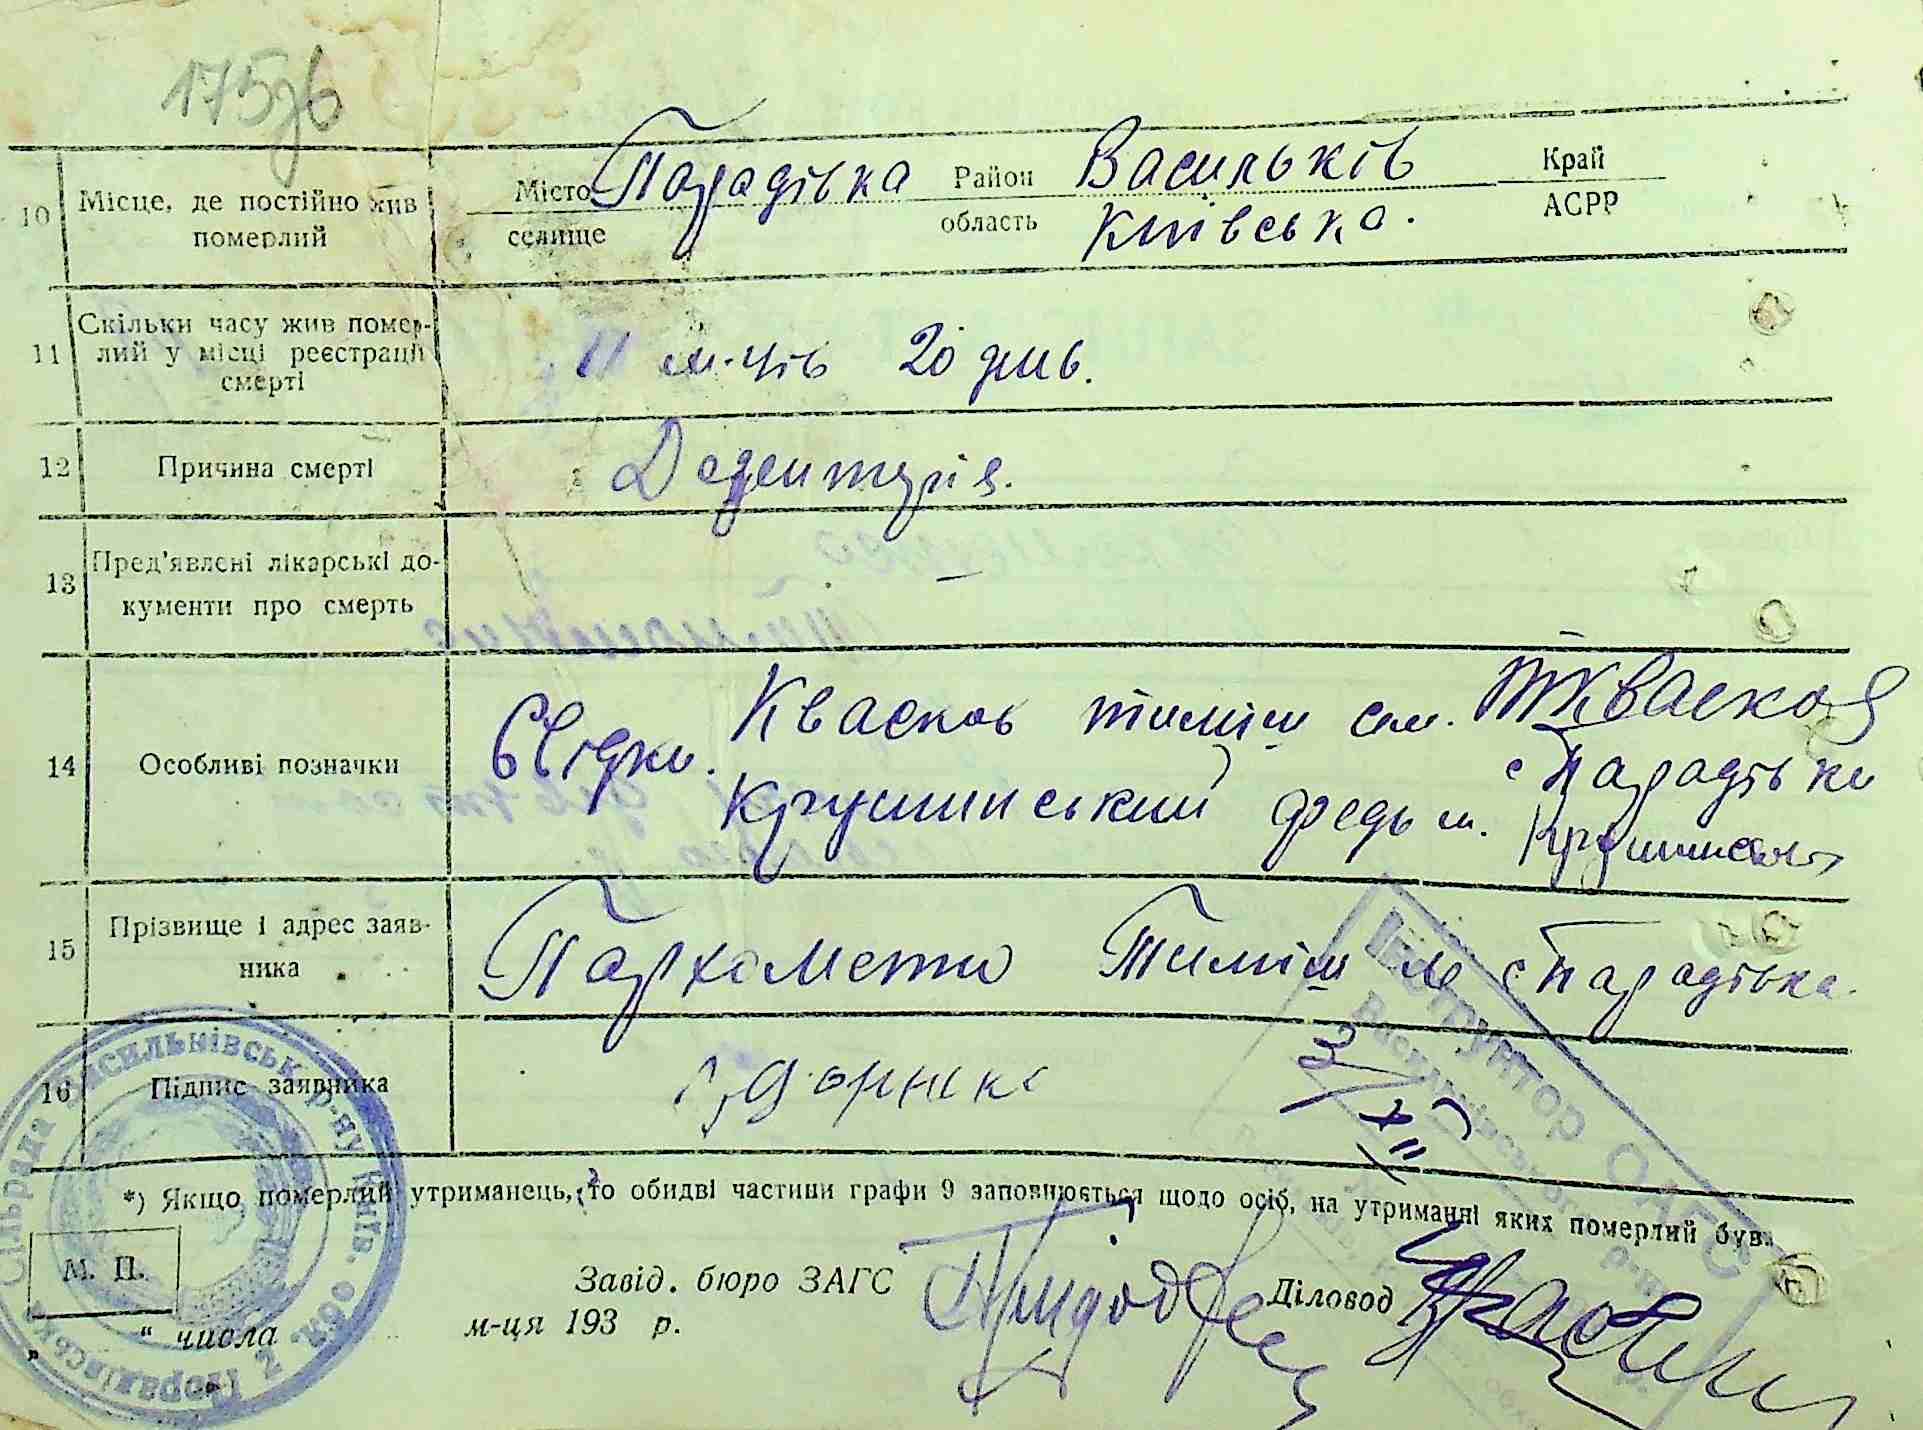 175зв
10 Місце, де постійно жив померлий Місто селище Парадівка Район Васильків Край
область Київська. АСРР
11 Скільки часу жив помер-
лий у місці реєстрації
смерті 11 м-ців 20 днів.
12 Причина смерті Дезентерія.
13 Пред'явлені лікарські до-
кументи про смерть —
14 Особливі позначки Свідки. Квасков Тиміш сем. Квасков
с Парадівки
Крушинський Федь м.
15 Прізвище і адрес заяв-
ника Пархоменко Тиміш с Парадівка.
16 Підпис заявника
3/XII
*) Якщо померлий утриманець, то обидві частини графи 9 заповнюється щодо осіб, на утриманні яких померлий був.
М. П. Завід. бюро ЗАГС Діловод
„ “ числа м-ця 193 р.
Сільрада Васильківськ. р-ну Київ. обл.
Інструктор ОАГС
Васильківського р-ну